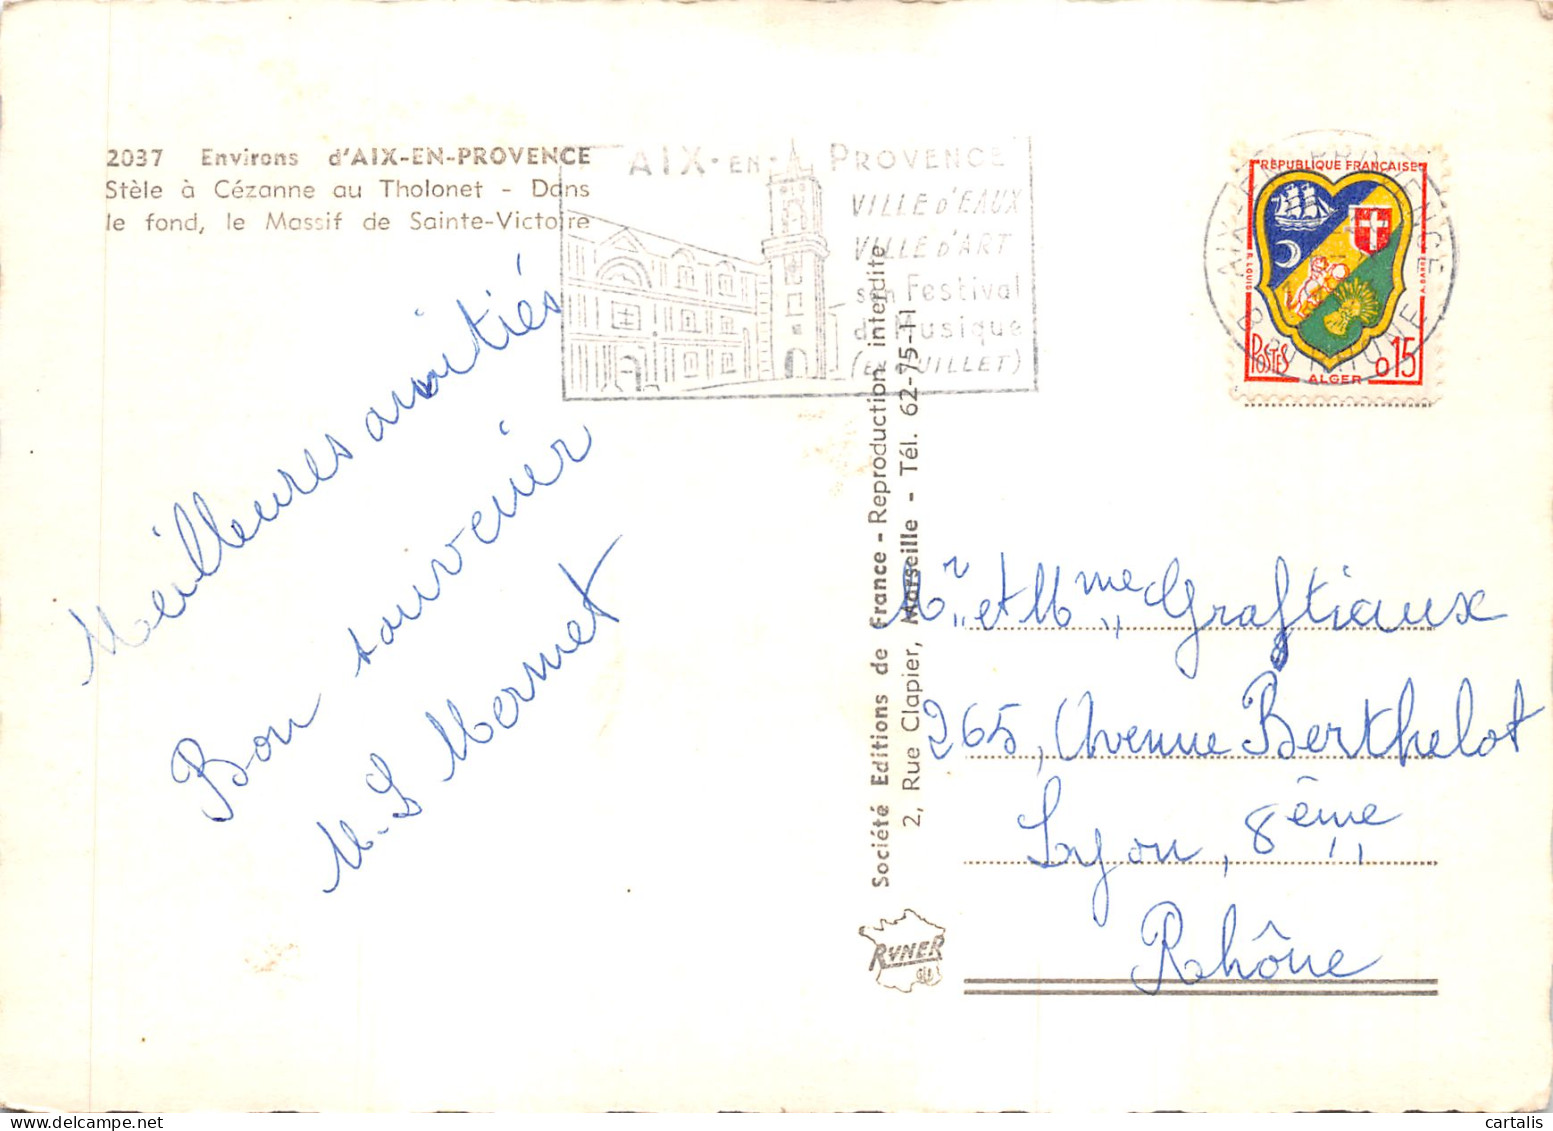 2037 Environs d'AIX-EN-PROVENCE
Stèle à Cézanne au Tholonet - Dans
le fond, le Massif de Sainte-Victoire
AIX-EN-PROVENCE
VILLE D'EAUX
VILLE D'ART
son Festival
de Musique
(EN JUILLET)
RÉPUBLIQUE FRANÇAISE
POSTES
0,15
ALGER
AIX-EN-PROVENCE
Meilleures amitiés
Bon souvenir
M.L Mermet
Société Editions de France - Reproduction interdite
2, Rue Clapier, Marseille - Tél. 62-75-11
RYNER
Mr et Mme Graftiaux
265, Avenue Berthelot
Lyon, 8ème
Rhône
cartalis